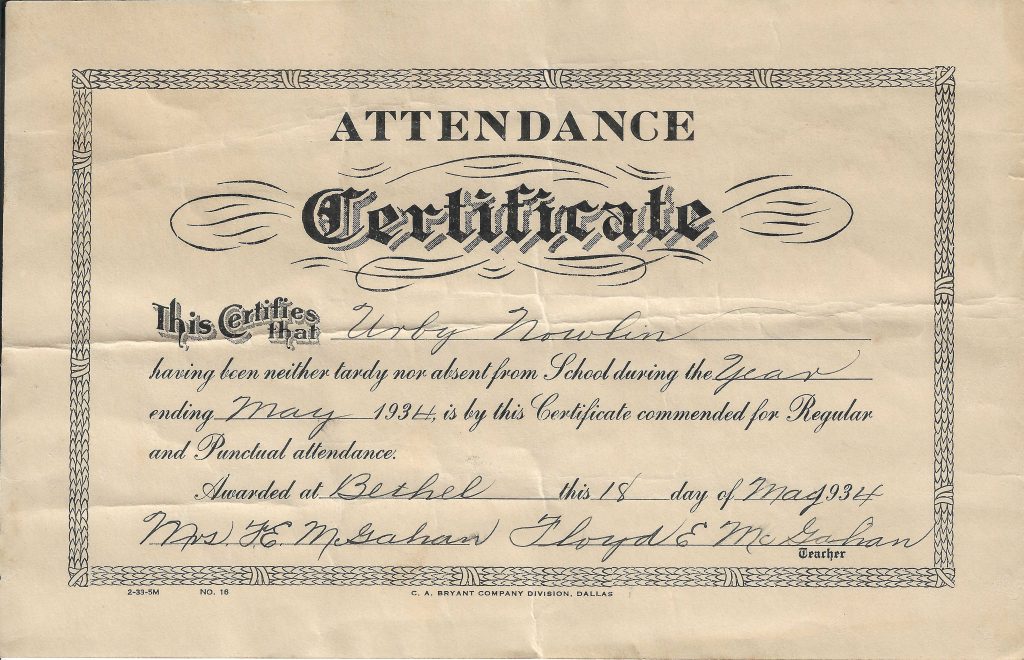 ATTENDANCE
Certificate
This Certifies that Urby Nowlin
having been neither tardy nor absent from School during the Year
ending May 1934, is by this Certificate commended for Regular
and Punctual attendance.
Awarded at Bethel this 18 day of May 1934
Mrs. F.E. McGahan Floyd E McGahan
Teacher
2-33-5M NO. 16 C. A. BRYANT COMPANY DIVISION, DALLAS